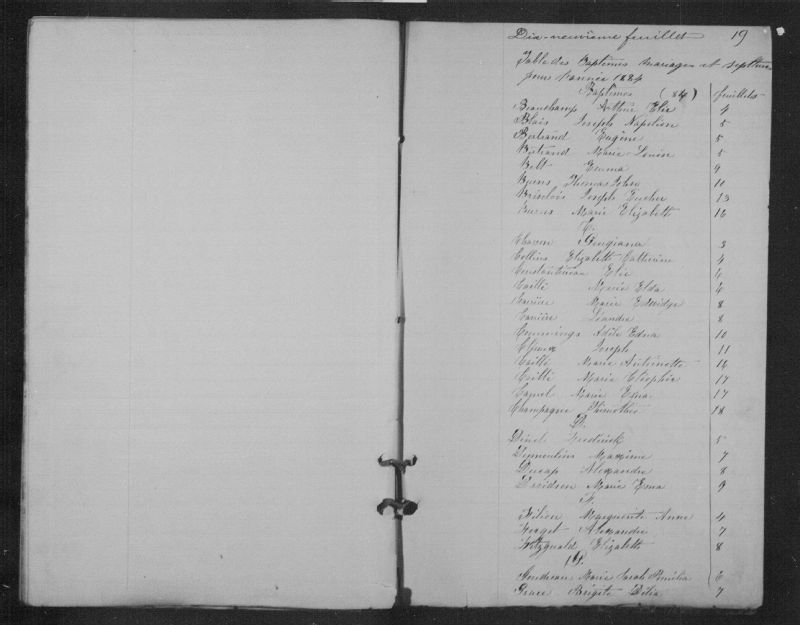 Dix-neuvième feuillet 19
Table des Baptêmes mariages et sépultures
pour l'année 1884
Baptêmes (84) feuillets
Beauchamp Arthur Elie 4
Blais Joseph Napoléon 5
Bertrand Eugène 5
Bertrand Marie-Louise 5
Belt Emma 9
Burns Thomas John 10
Joseph Eucher 13
Burns Marie Elizabeth 16
C.
Georgiana 3
Collins Elizabeth Catherine 4
Constantineau Elie 6
Caillé Marie Elda 6
Carrière Marie Edwidge 8
Carrière Léandre 8
Cummings Adèle Edna 10
Joseph 11
Caillé Marie Antoinette 16
Marie Cléophée 17
Marie Ema 17
Champagne Thimothée 18
D.
Frederick 5
Maxime 7
Alexandre 8
Davidson Marie Ema 9
F.
Filion Marguerite Anne 4
Forget Alexandre 7
Fitzgerald Elizabeth 8
G.
Marie Sarah Amélia 6
Grace Brigite Délia 7